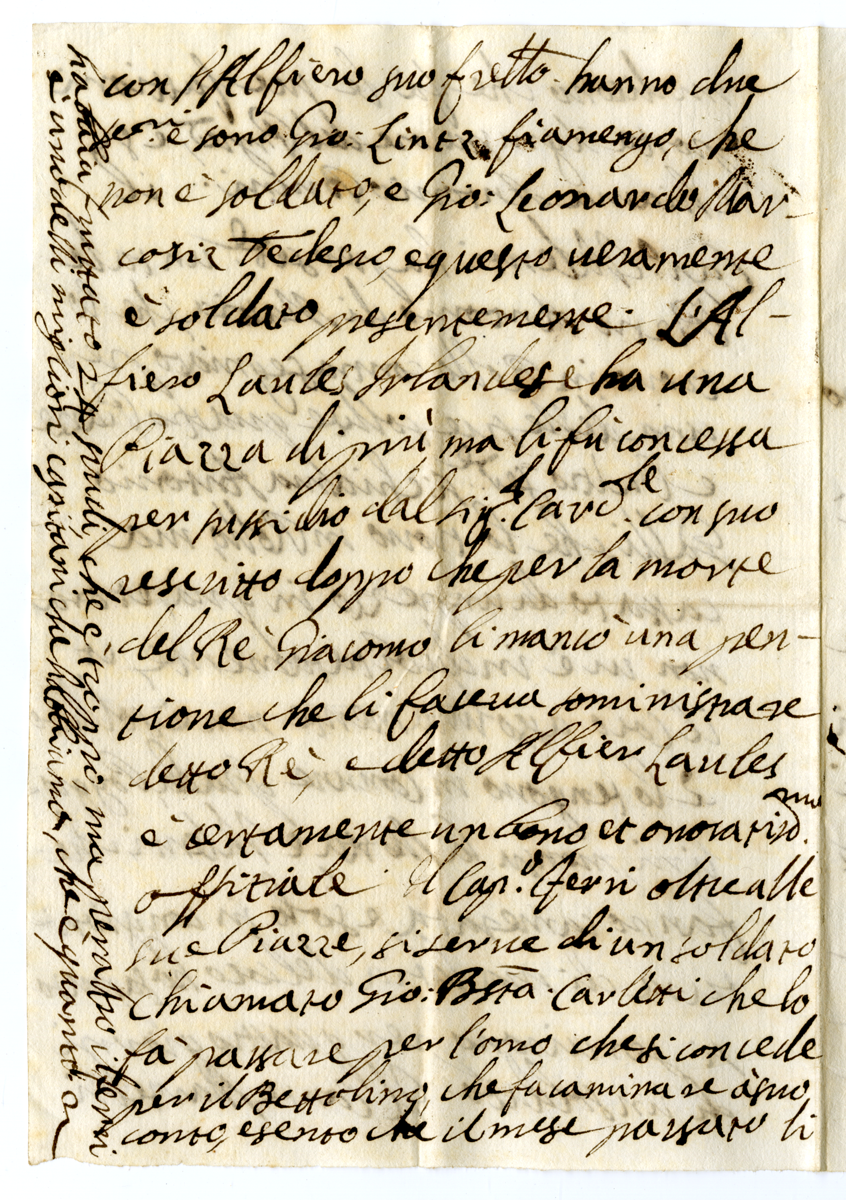 con l'Alfiero suo frãtto hanno due
seru.i e sono Gio: Lintz fiamengo, che
non è soldato, e Gio: Leonardo Mar-
cosiz Tedesco, e questo ueramente
è soldato presentemente. L'Al-
fiero Laules Irlandese ha una
Piazza di più ma li fù concessa
per sussidio dal Sig.r Card.le con suo
rescritto doppo che per la morte
del Rè Giacomo li mancò una pen-
tione che li faceua somministrare
detto Rè, e detto Alfier Laules
è certamente un bono et onoratiss.mo
offitiale. Il Cap.o Ferri oltre alle
sue Piazze, si serue di un soldato
chiamato Gio: Bsta. Carletti che lo
fà passare per l'omo che si concede
per il Bettolino, che fa caminare à suo
conto, e sento che il mese passato li
habbia fruttato 24 scudi, che è troppo, ma peraltro il Ferri
è uno delli migliori capitani che habbiamo, che è quanto